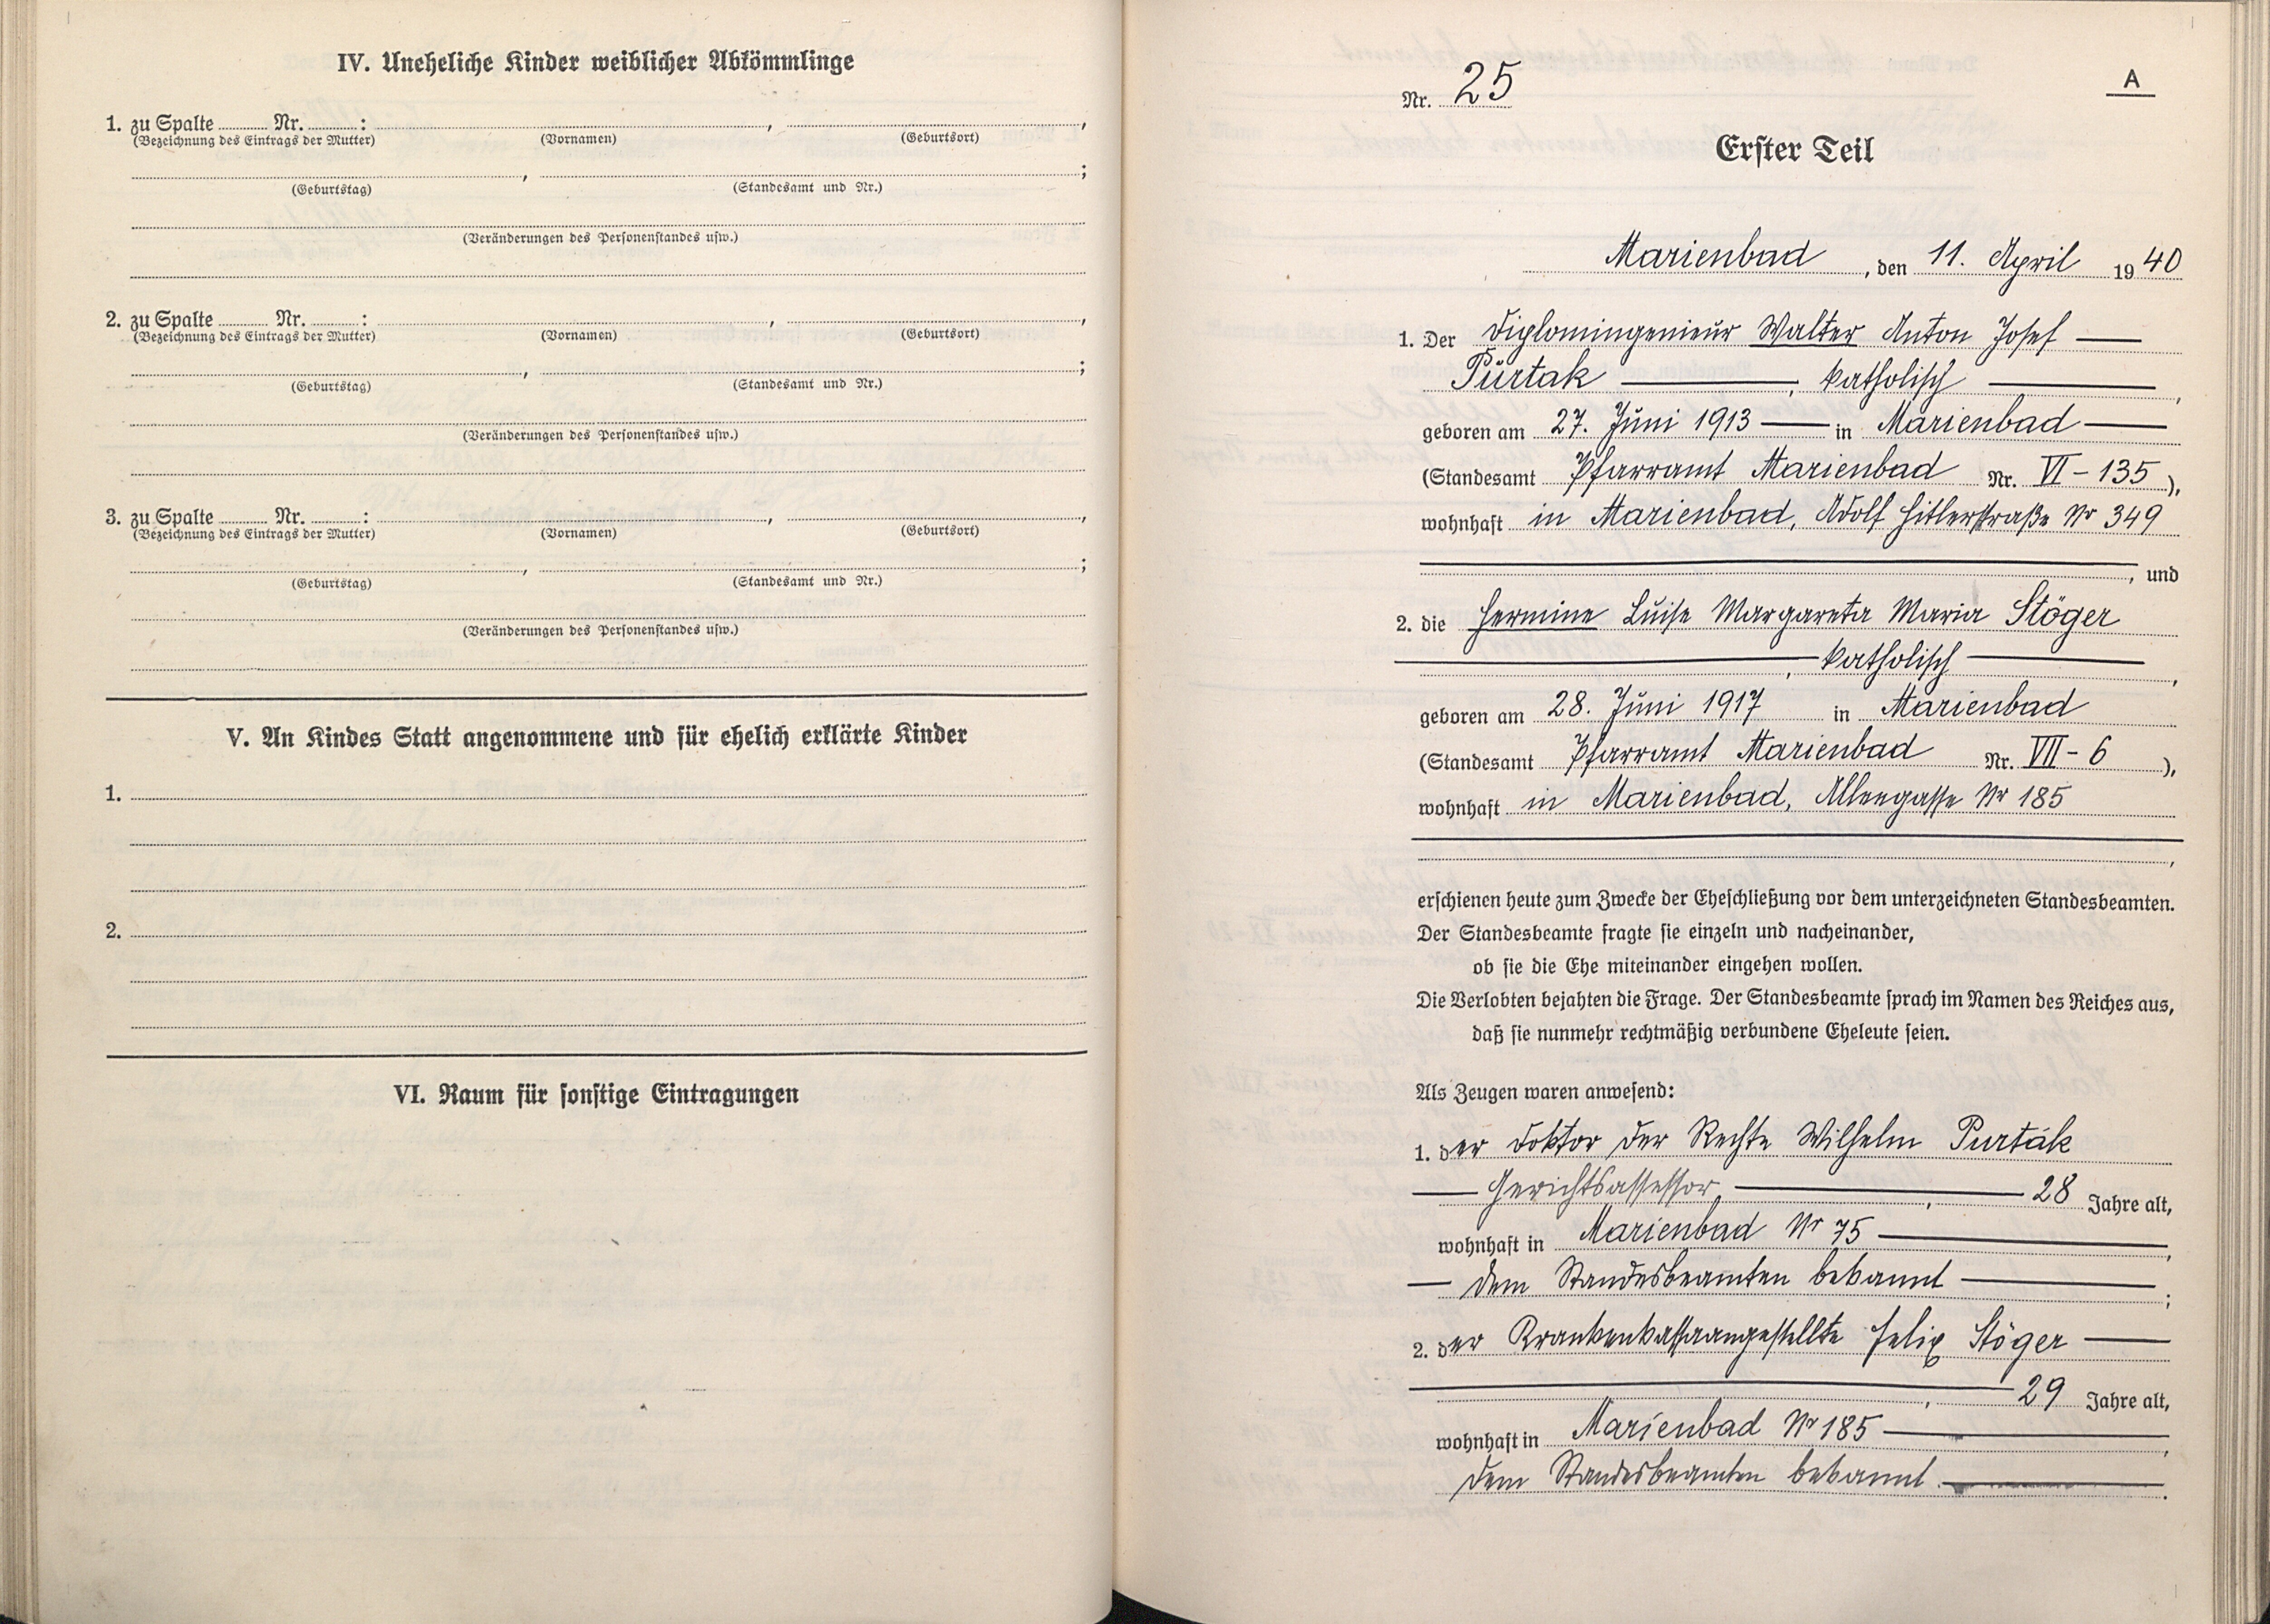 IV. Uneheliche Kinder weiblicher Abkömmlinge
1. zu Spalte ........ Nr. ........: ........, ........,
(Bezeichnung des Eintrags der Mutter) (Vornamen) (Geburtsort)
........, ........;
(Geburtstag) (Standesamt und Nr.)
(Veränderungen des Personenstandes usw.)
2. zu Spalte ........ Nr. ........: ........, ........,
(Bezeichnung des Eintrags der Mutter) (Vornamen) (Geburtsort)
........, ........;
(Geburtstag) (Standesamt und Nr.)
(Veränderungen des Personenstandes usw.)
3. zu Spalte ........ Nr. ........: ........, ........,
(Bezeichnung des Eintrags der Mutter) (Vornamen) (Geburtsort)
........, ........;
(Geburtstag) (Standesamt und Nr.)
(Veränderungen des Personenstandes usw.)
V. An Kindes Statt angenommene und für ehelich erklärte Kinder
1.
2.
VI. Raum für sonstige Eintragungen
A
Nr. 25
Erster Teil
Marienbad, den 11. April 1940
1. Der Diplomingenieur Walter Anton Josef —
Purtak —, katholisch —,
geboren am 27. Juni 1913 — in Marienbad —
(Standesamt Pfarramt Marienbad Nr. VI - 135),
wohnhaft in Marienbad, Adolf Hitlerstraße Nr 349
, und
2. die Hermine Luise Margareta Maria Stöger
—, katholisch —,
geboren am 28. Juni 1917 in Marienbad
(Standesamt Pfarramt Marienbad Nr. VII - 6),
wohnhaft in Marienbad, Alleegasse Nr 185
,
erschienen heute zum Zwecke der Eheschließung vor dem unterzeichneten Standesbeamten.
Der Standesbeamte fragte sie einzeln und nacheinander,
ob sie die Ehe miteinander eingehen wollen.
Die Verlobten bejahten die Frage. Der Standesbeamte sprach im Namen des Reiches aus,
daß sie nunmehr rechtmäßig verbundene Eheleute seien.
Als Zeugen waren anwesend:
1. der Doktor der Rechte Wilhelm Purták
— Gerichtsassessor, —, 28 Jahre alt,
wohnhaft in Marienbad Nr 75 —,
— dem Standesbeamten bekannt —;
2. der Krankenkassaangestellte Felix Stöger —
—, 29 Jahre alt,
wohnhaft in Marienbad Nr 185 —,
dem Standesbeamten bekannt. —.